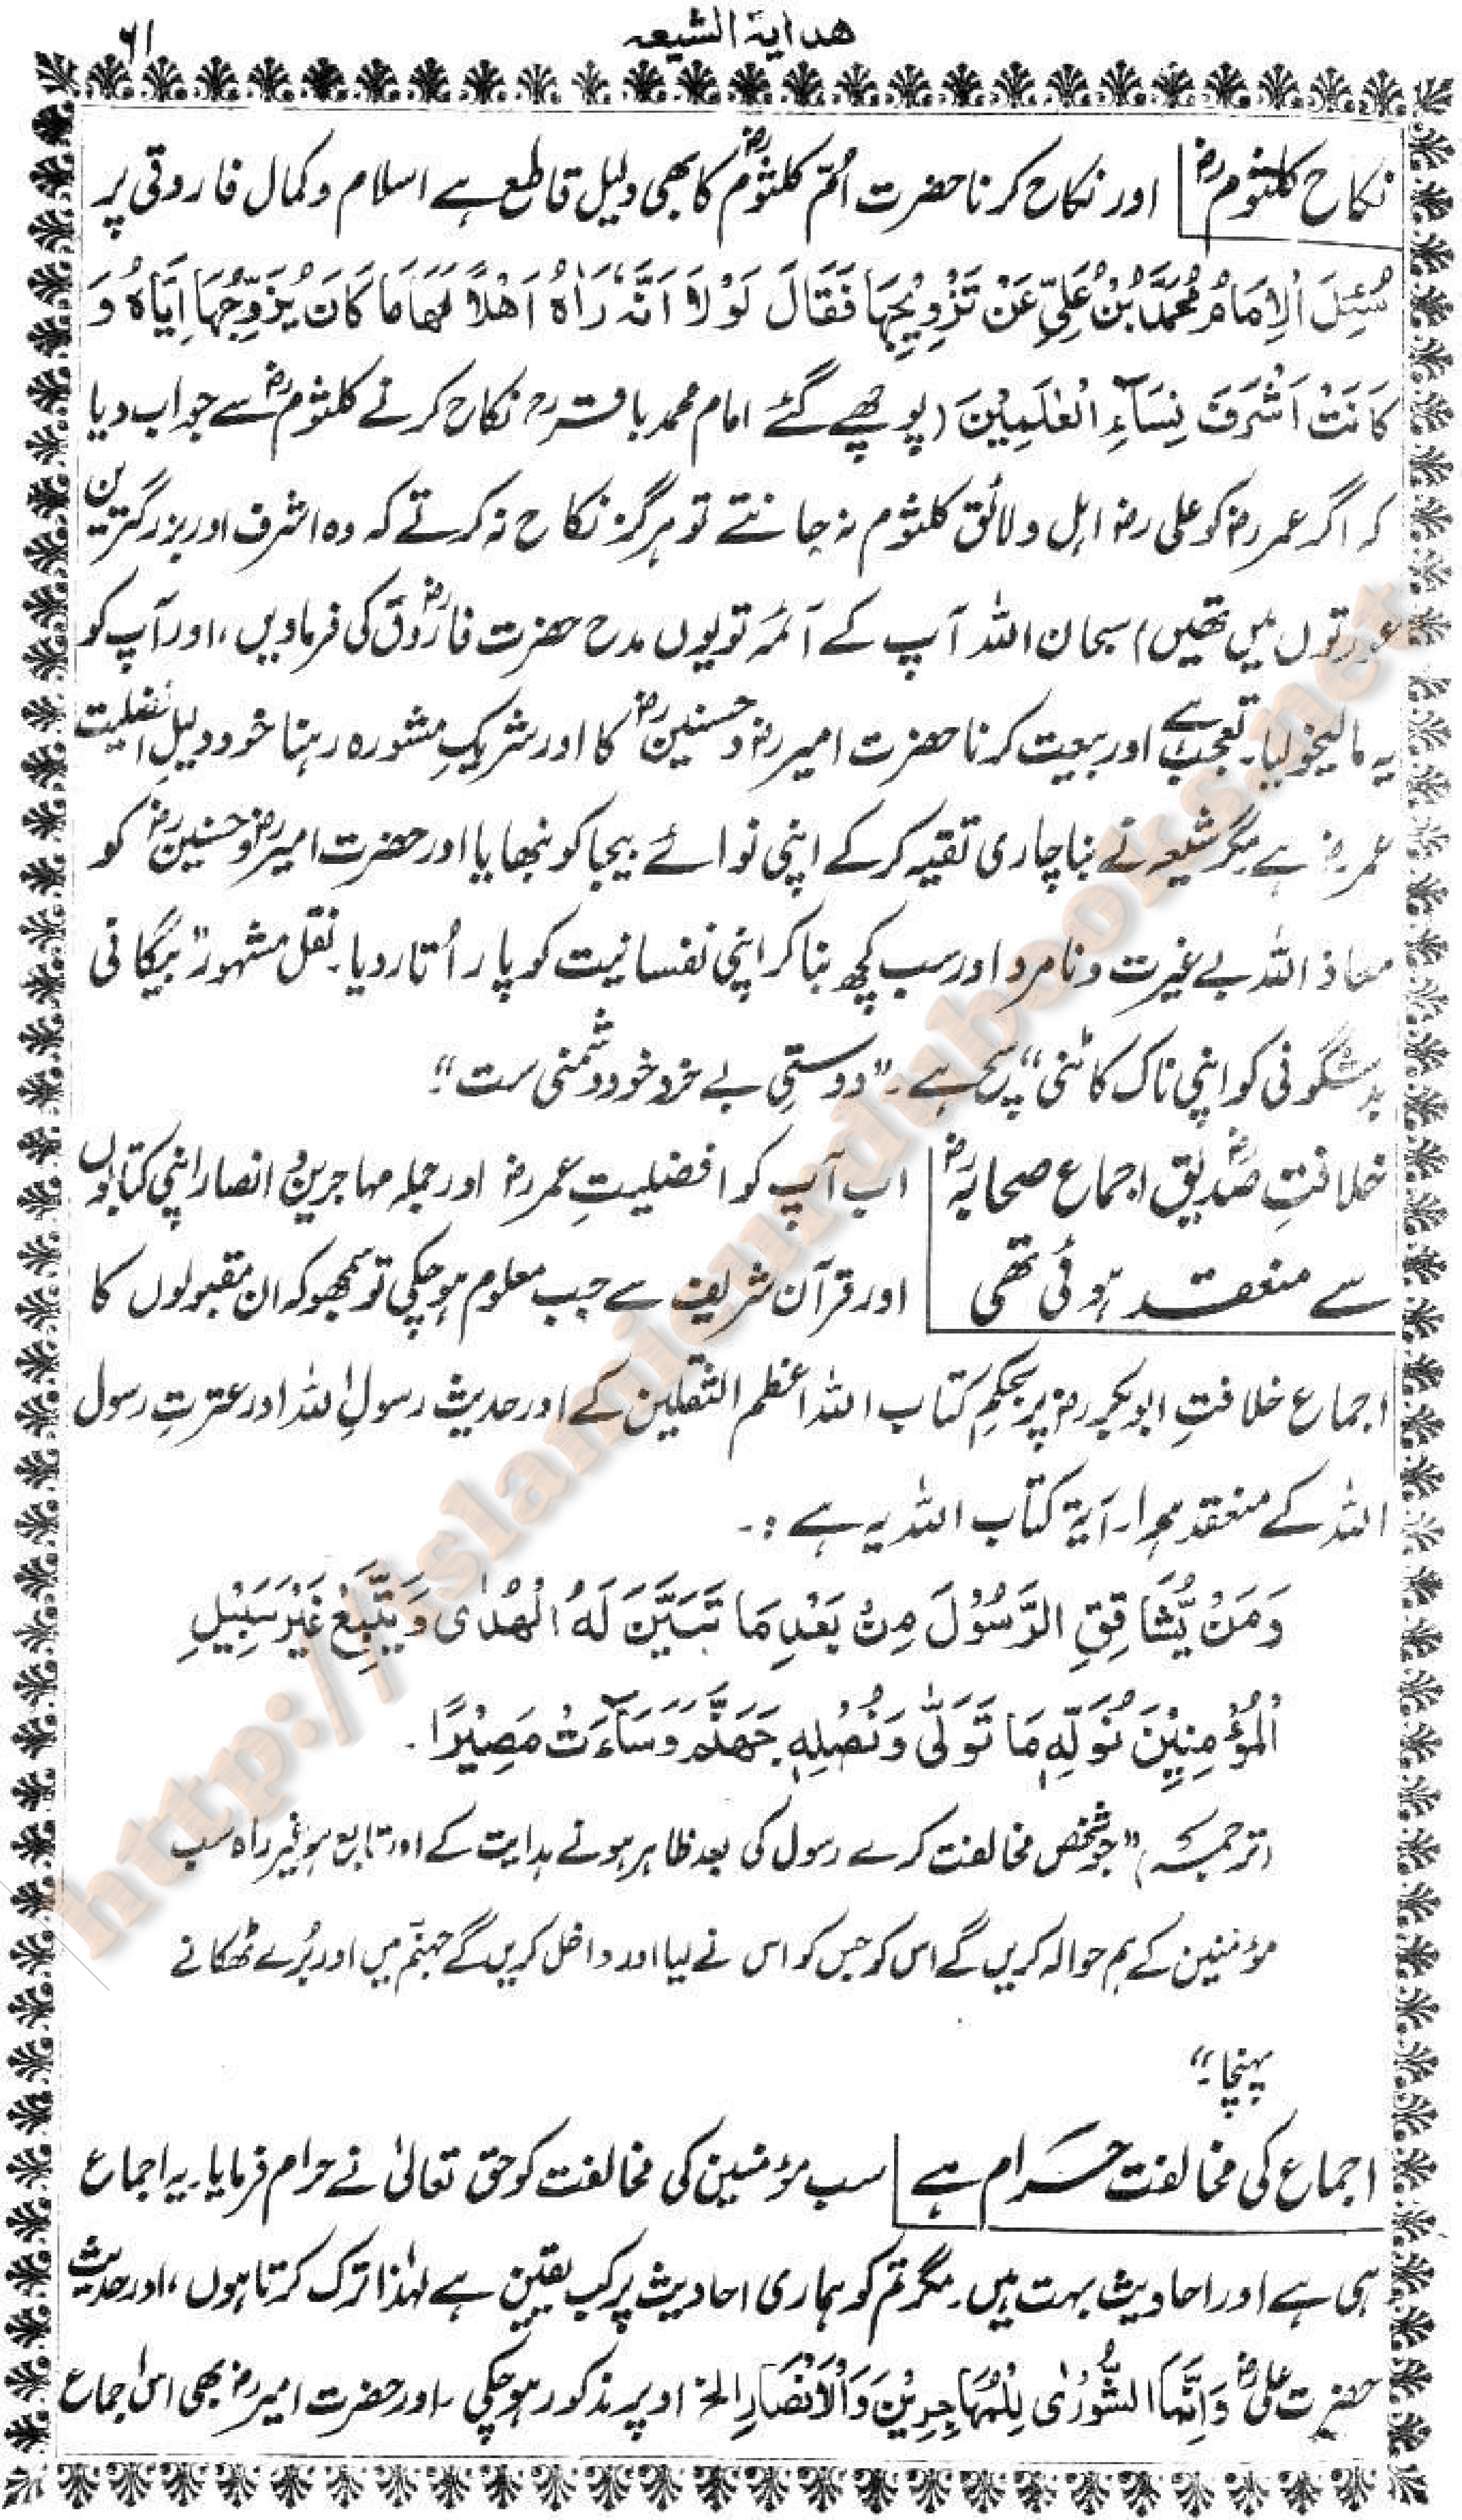 ھدایۃ الشیعہ
۶۱
نکاح کلثوم رض اور نکاح کرنا حضرت اُمّ کلثوم رض کا بھی دلیل قاطع ہے اسلام و کمال فاروقی پر
سُئِلَ الْاِمَامُ مُحَمَّدُ بْنُ عَلِیٍّ عَنْ تَزْوِیْجِہَا فَقَالَ لَوْلَا اَنَّہٗ رَاٰہُ اَھْلًا لَھَا مَا کَانَ یُزَوِّجُہَا اِیَّاہُ وَ
کَانَتْ اَشْرَفَ نِسَآءِ الْعٰلَمِیْنَ (پوچھے گئے امام محمد باقر رح نکاح کرنے کلثوم رض سے جواب دیا
کہ اگر عمر رض کو علی رض اہل و لائق کلثوم نہ جانتے تو ہرگز نکاح نہ کرتے کہ وہ اشرف اور بزرگترین
عورتوں میں تھیں) سبحان اللہ آپ کے آئمہ تو یوں مدح حضرت فاروق رض کی فرماویں، اور آپ کو
یہ مالیخولیا۔ تعجب ہے اور بیعت کرنا حضرت امیر رض و حسنین رض کا اور شریکِ مشورہ رہنا خود دلیلِ افضلیت
عمر رض ہے مگر شیعہ نے بناچاری تقیہ کر کے اپنی نوائے بیجا کو نبھایا اور حضرت امیر رض و حسنین رض کو
معاذ اللہ بے غیرت و نامرد اور سب کچھ بنا کر اپنی نفسانیت کو پار اُتار دیا۔ نقل مشہور "بیگانی
بدشگونی کو اپنی ناک کاٹنی" سچ ہے۔ "دوستیِ بے خرد خود دشمنی ست"۔
خلافتِ صدیق رض اجماع صحابہ رض اب آپ کو افضلیتِ عمر رض اور جملہ مہاجرین و انصار اپنی کتابوں
سے منعقد ہوئی تھی اور قرآن شریف سے جب معلوم ہو چکی تو سمجھو کہ ان مقبولوں کا
اجماع خلافتِ ابوبکر رض پر بحکمِ کتاب اللہ اعظم الثقلین کے اور حدیث رسول اللہ اور عترتِ رسول
اللہ کے منعقد ہوا۔ آیۃ کتاب اللہ یہ ہے :۔
وَمَنْ یُّشَاقِقِ الرَّسُوْلَ مِنْۢ بَعْدِ مَا تَبَیَّنَ لَہُ الْھُدٰی وَیَتَّبِعْ غَیْرَ سَبِیْلِ
الْمُؤْمِنِیْنَ نُوَلِّہٖ مَا تَوَلّٰی وَنُصْلِہٖ جَھَنَّمَ وَسَآءَتْ مَصِیْرًا ۔
(ترجمہ) "جو شخص مخالفت کرے رسول کی بعد ظاہر ہونے ہدایت کے اور تابع ہو غیر راہ سب
مؤمنین کے ہم حوالہ کریں گے اس کو جس کو اس نے لیا اور داخل کریں گے جہنّم میں اور بُرے ٹھکانے
پہنچا۔"
اجماع کی مخالفت حرام ہے سب مؤمنین کی مخالفت کو حق تعالیٰ نے حرام فرمایا۔ یہ اجماع
ہی ہے اور احادیث بہت ہیں۔ مگر تم کو ہماری احادیث پر کب یقین ہے لہٰذا ترک کرتا ہوں، اور حدیث
حضرت علی رض وَاِنَّمَا الشُّوْرٰی لِلْمُہَاجِرِیْنَ وَالْاَنْصَارِ الخ اوپر مذکور ہو چکی۔ اور حضرت امیر رض بھی اس اجماع
http://islamicurdubooks.net